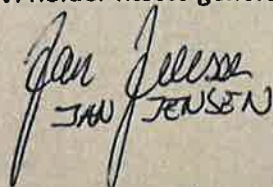 Jan Jensen
JAN JENSEN